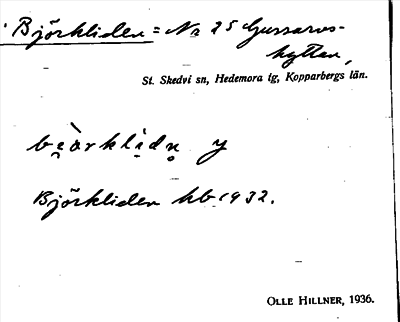 Björkliden = No 25 Gussarvs-
hyttan,
St. Skedvi sn, Hedemora tg, Kopparbergs län.
Björkliden hb 1932.
OLLE HILLNER, 1936.